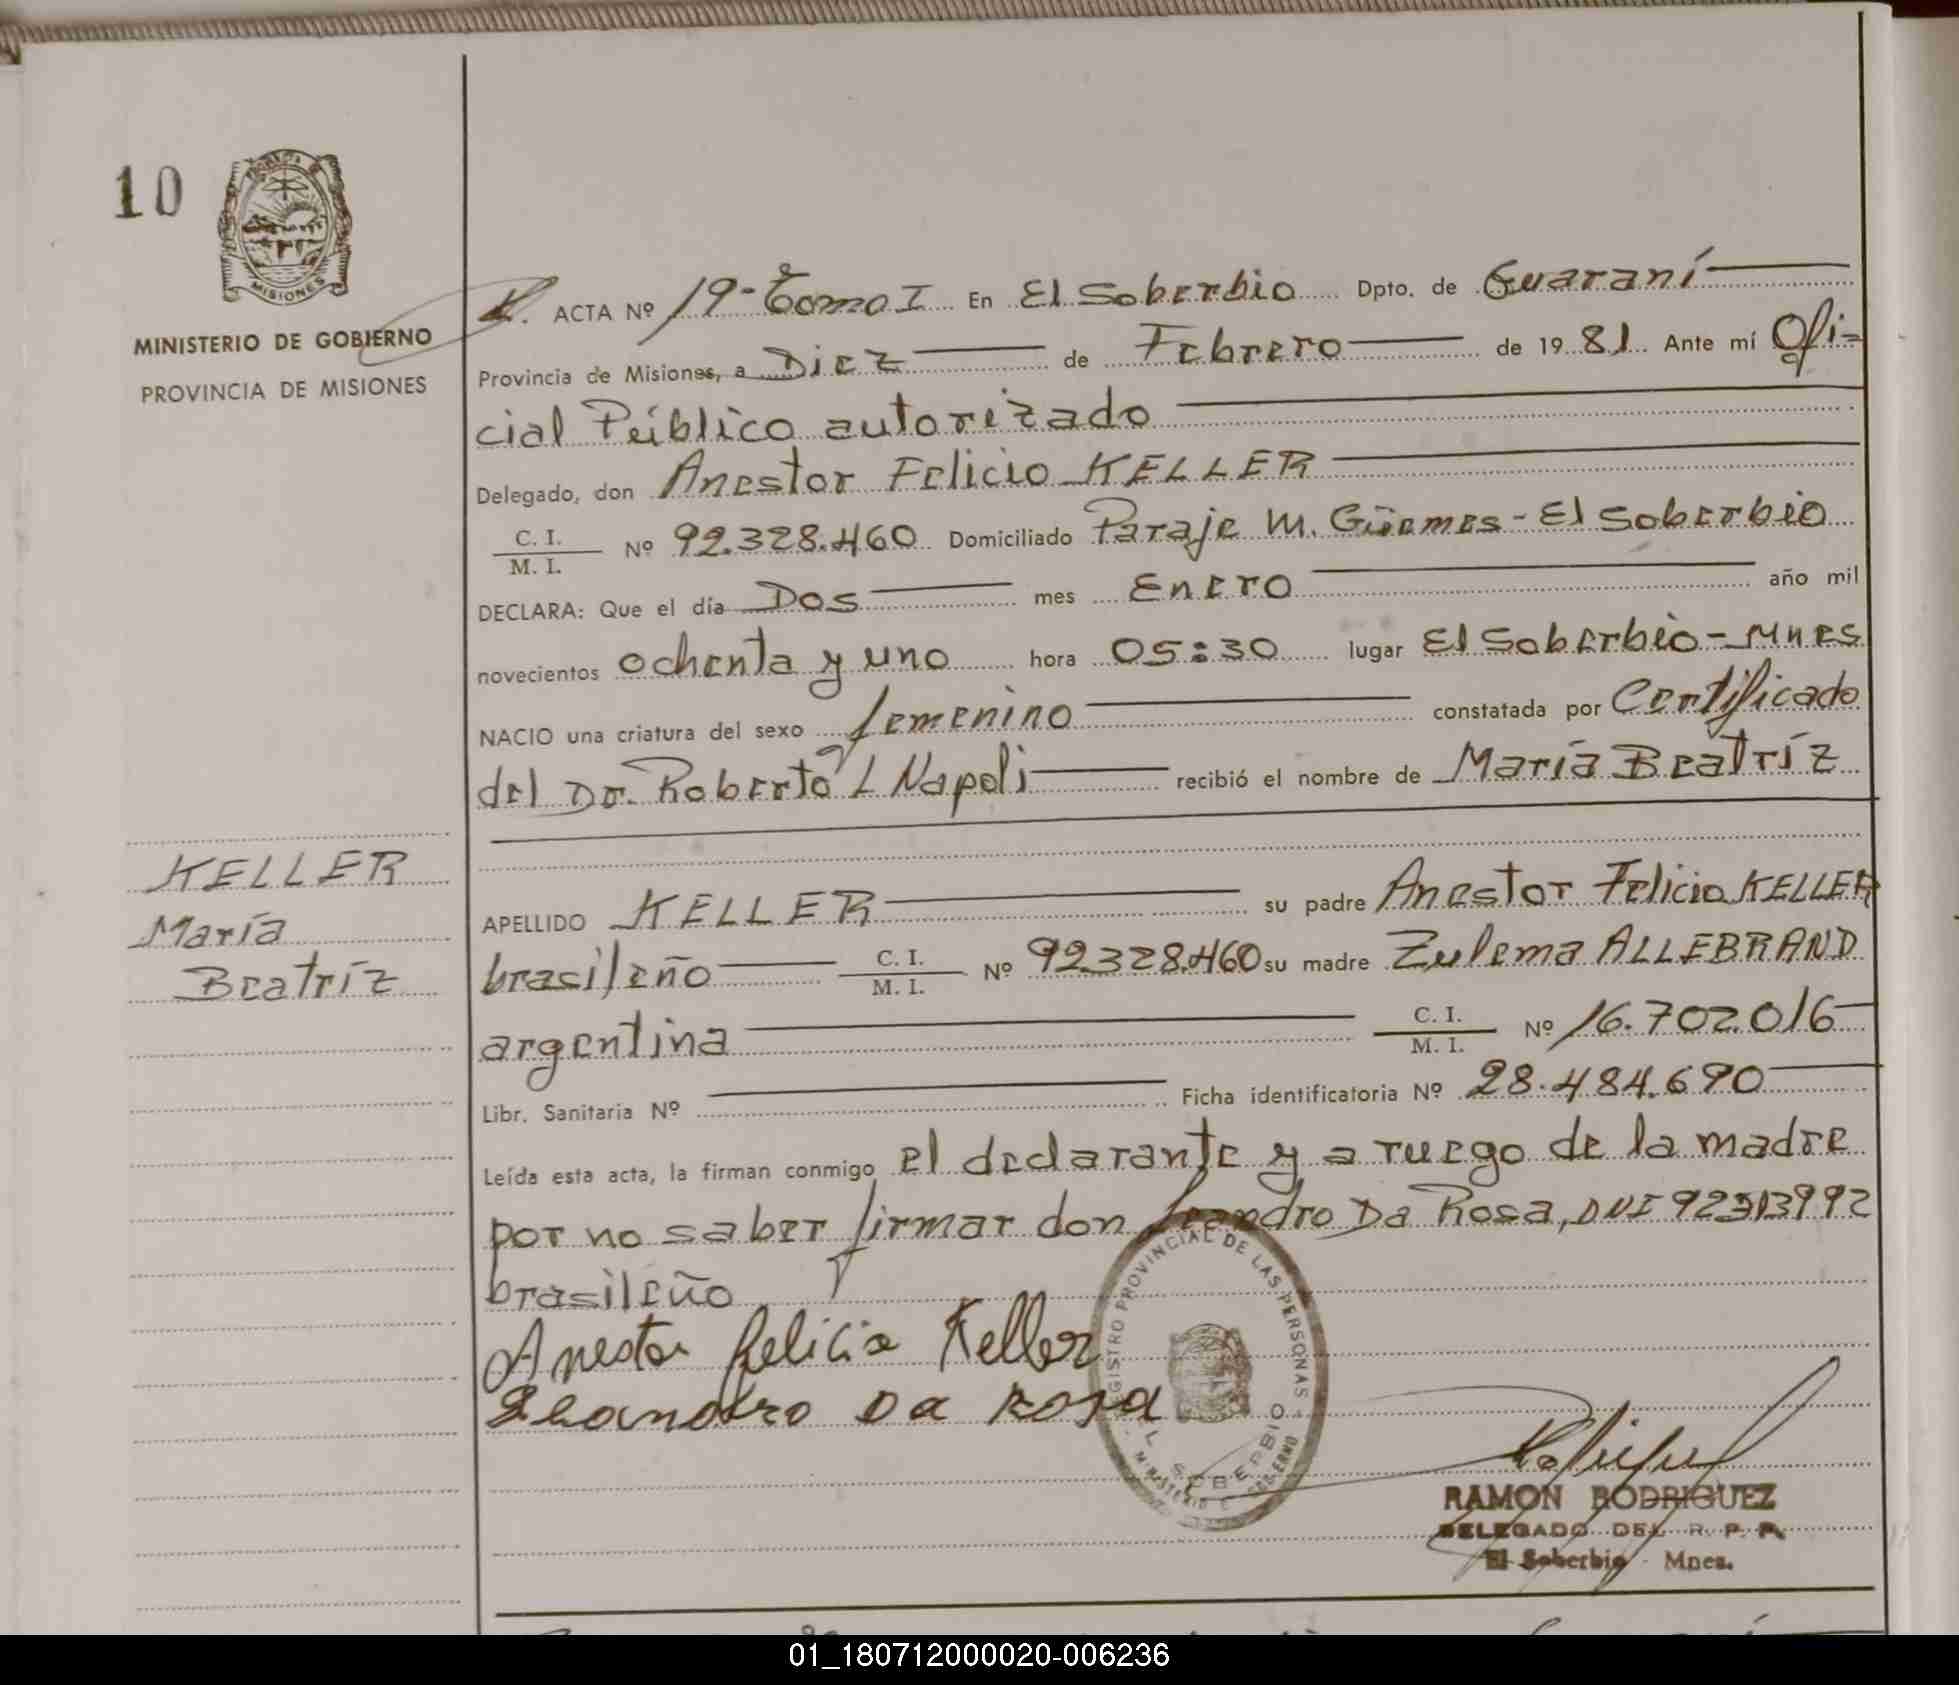 10
MISIONES
MINISTERIO DE GOBIERNO
PROVINCIA DE MISIONES
ACTA Nº 19-Tomo I En El Soberbio Dpto. de Guaraní
Provincia de Misiones, a Diez de Febrero de 1981 Ante mí Ofi=
cial Público autorizado
Delegado, don Anestor Felicio KELLER
C. I. / M. I. Nº 92.328.460 Domiciliado Paraje M. Güemes - El Soberbio
DECLARA: Que el día Dos mes Enero año mil
novecientos ochenta y uno hora 05:30 lugar El Soberbio-Mnes
NACIO una criatura del sexo femenino constatada por Certificado
del Dr. Roberto L Napoli recibió el nombre de María Beatríz
KELLER
María
Beatríz
APELLIDO KELLER su padre Anestor Felicio KELLER
brasileño C. I. / M. I. Nº 92.328.460 su madre Zulema ALLEBRAND
argentina C. I. / M. I. Nº 16.702.016
Libr. Sanitaria Nº Ficha identificatoria Nº 28.484.690
Leída esta acta, la firman conmigo el declarante y a ruego de la madre
por no saber firmar don Leandro Da Rosa, DNI 92313992
brasileño
Anestor Felicio Keller
Leandro Da Rosa
REGISTRO PROVINCIAL DE LAS PERSONAS
EL SOBERBIO
MINISTERIO DE GOBIERNO
RAMON RODRIGUEZ
DELEGADO DEL R. P. P.
El Soberbio - Mnes.
01_180712000020-006236